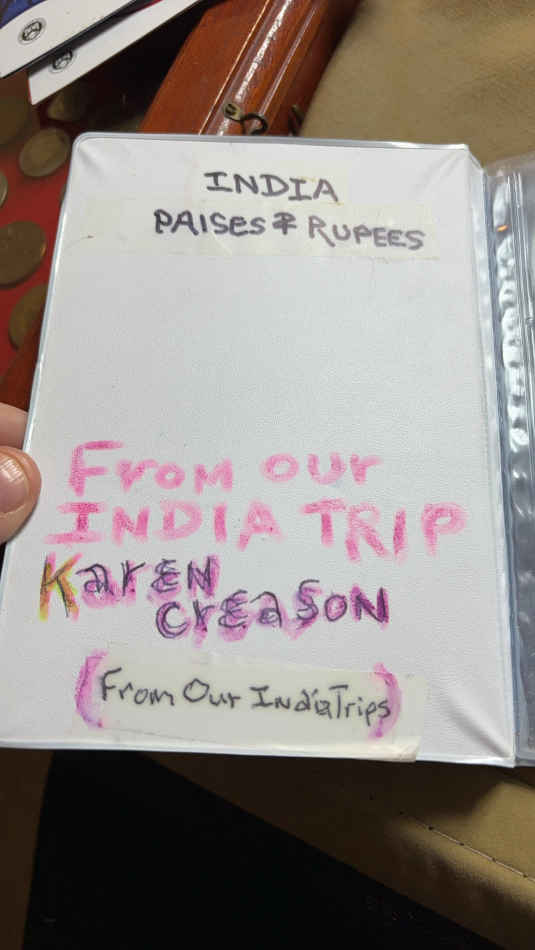 INDIA
PAISES & RUPEES
From our
INDIA TRIP
Karen
Creason
(From Our India Trips)